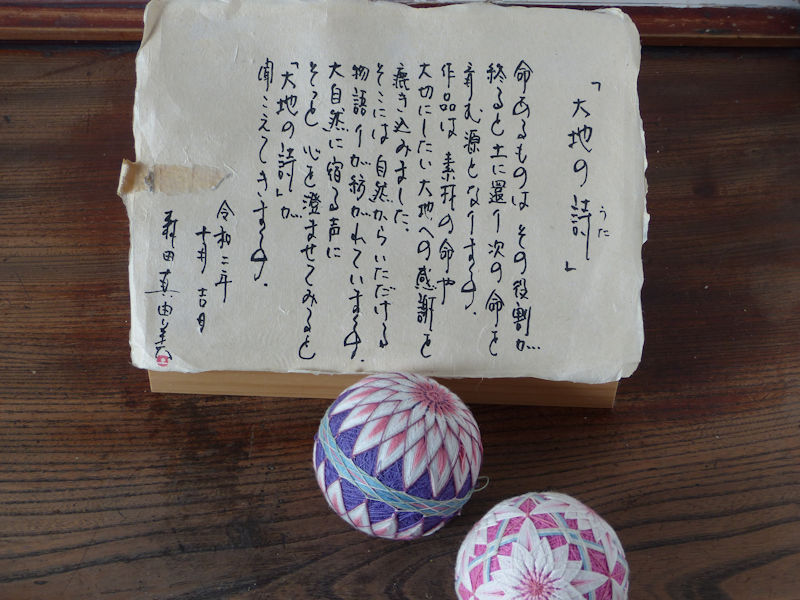 「大地の詩」
うた
命あるものは その役割が
終ると土に還り次の命を
育む源となります。
作品は 素材の命や
大切にしたい 大地への感謝を
漉き込みました。
そこには 自然からいただける
物語りが紡がれています。
大自然に宿る声に
そっと 心を澄ませてみると
「大地の詩」が
聞こえてきます。
令和二年
吉日
森田真由美